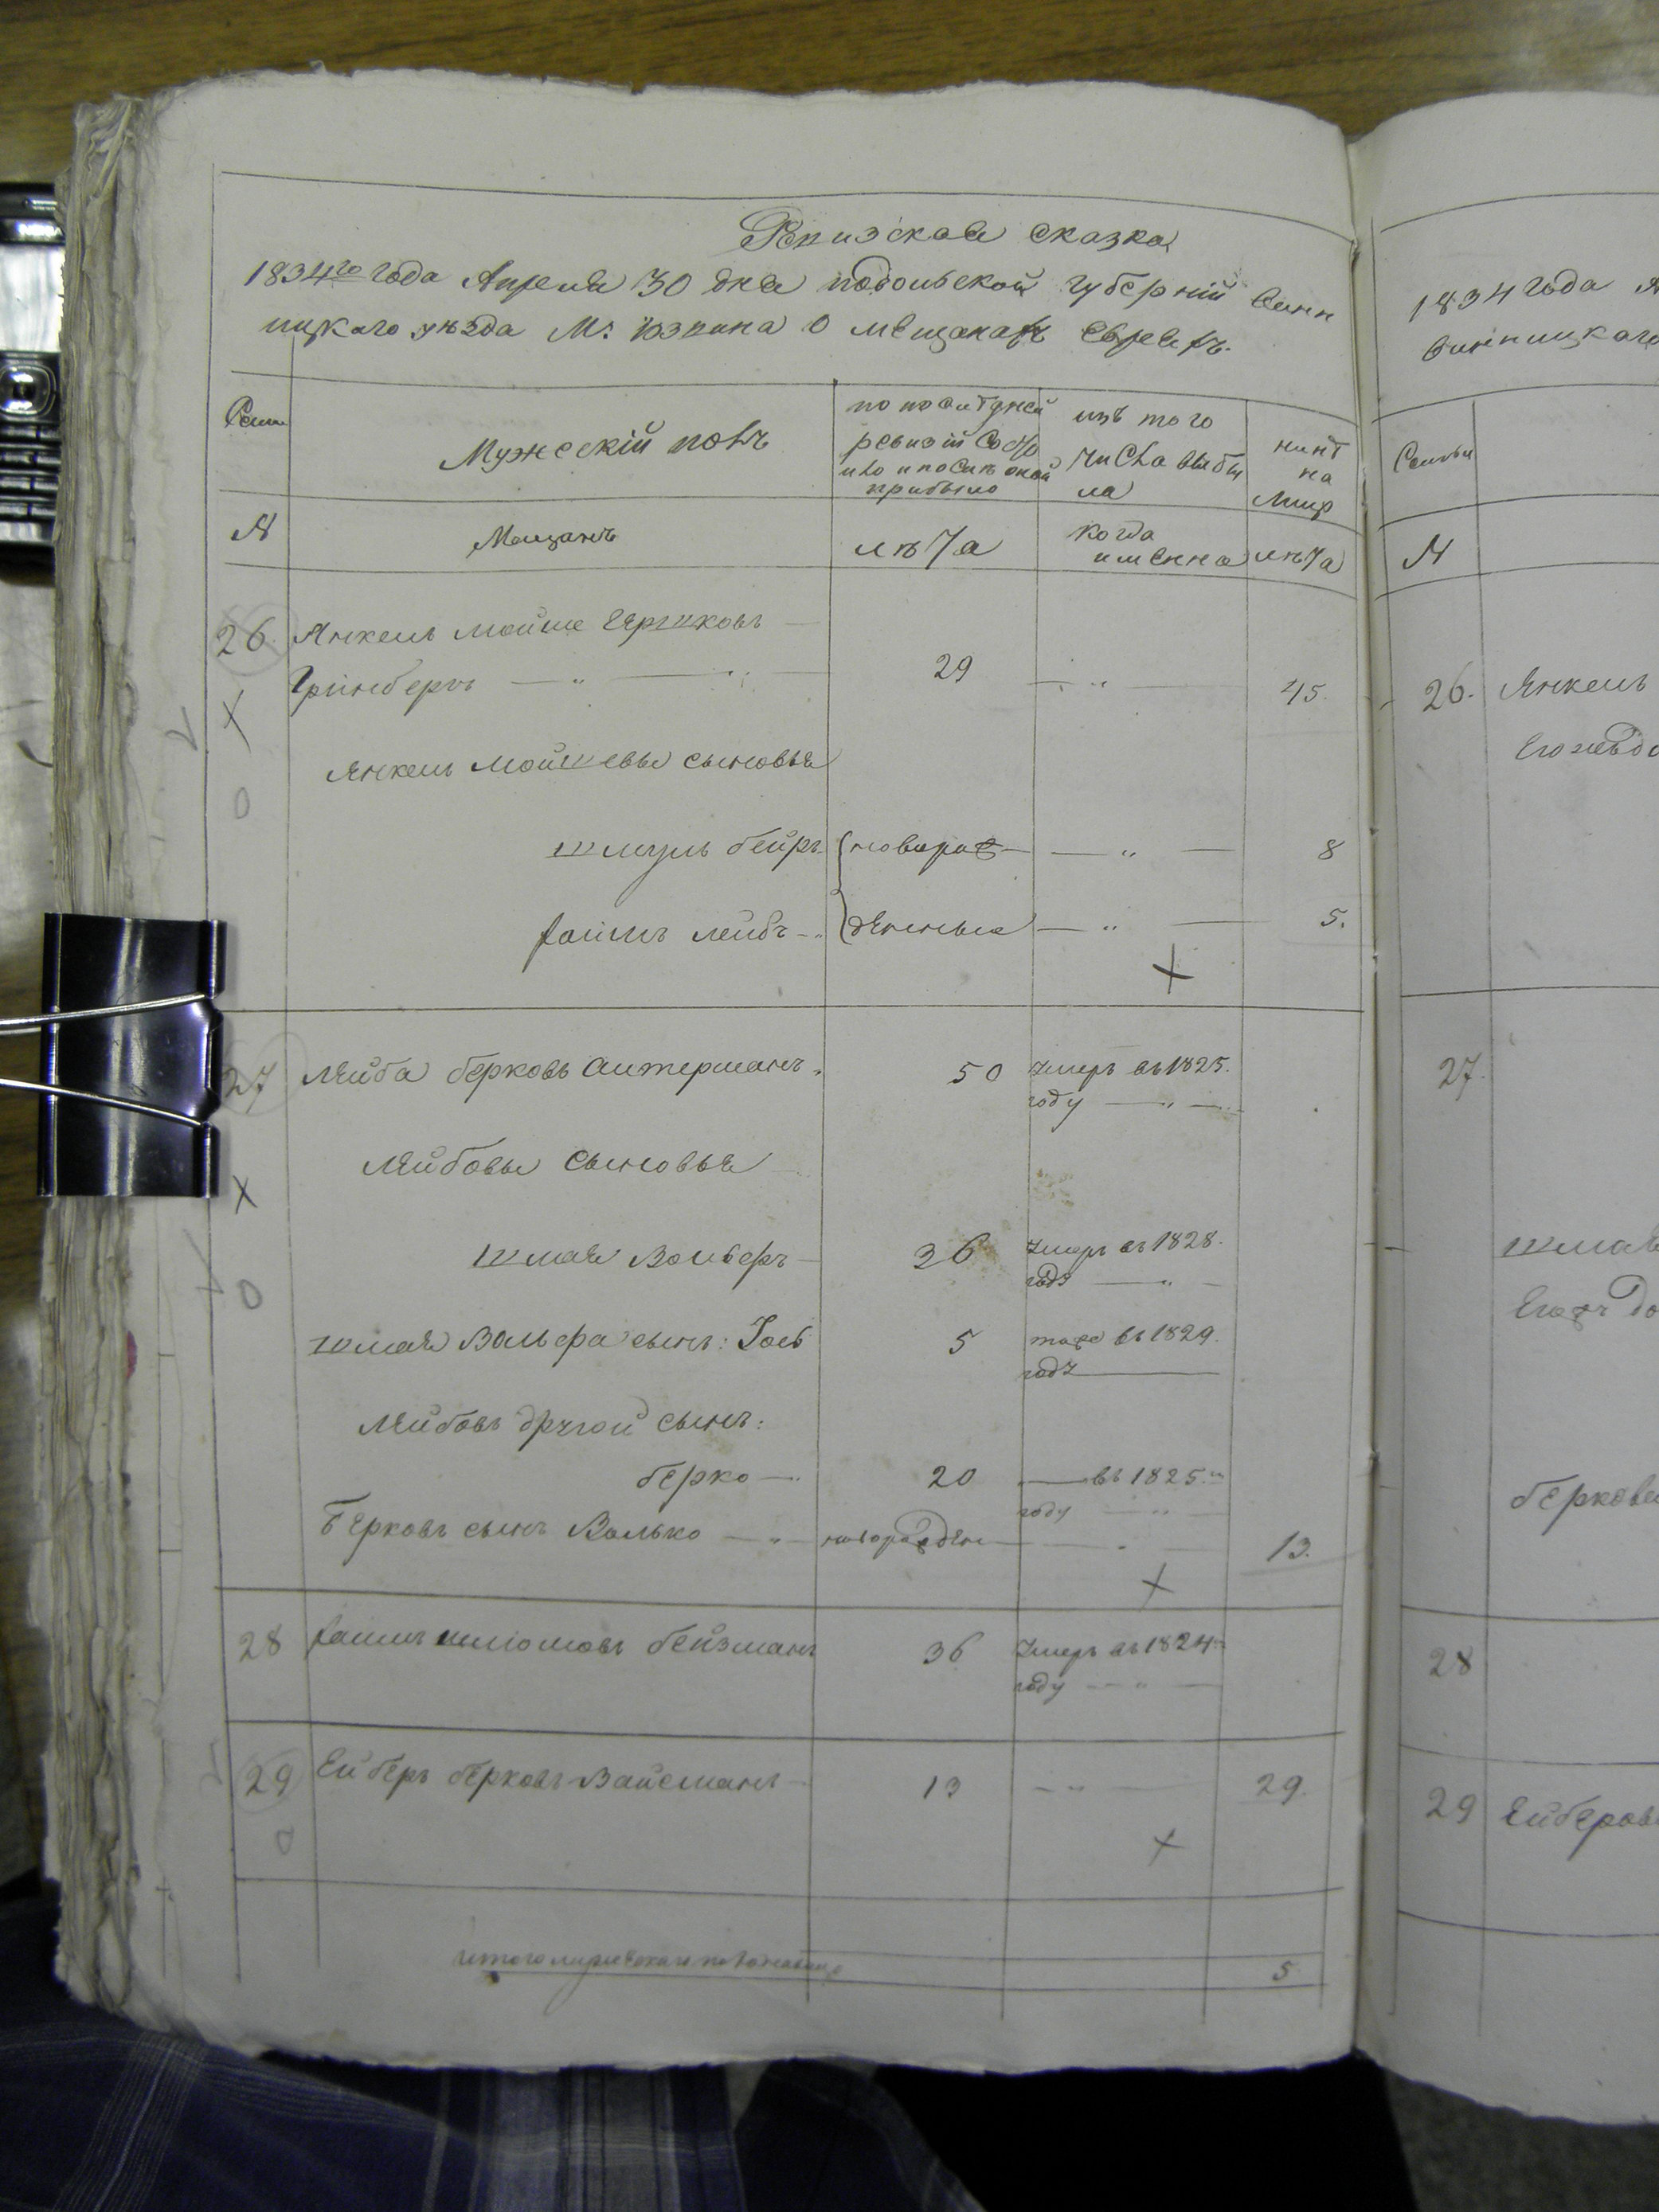 Ревизская сказка
1834го года Апреля 30 дня подольской губернiи Винн
ицкаго уѣзда М: юзвина О мещанахъ Евреяхъ.
Семьи
Мужескiй полъ
по последней
ревизiи состо
ило и после оной
прибыло
изъ того
числа выбы
ла
нынѣ
на
лицо
№
Мещанъ
лѣта
когда
именно
лѣта
26
Янкель Мойше Гершковъ
Гринбергъ
29
45.
Янкель Мойшевы сыновья
шмуль бейръ
новорож
8
хаимъ лейбъ
денные
5.
27
Лейба берковъ Антерманъ
50
умеръ въ 1825.
году
Лейбовы сыновья
шмая Вольфъ
36
умеръ въ 1828.
годе
шмая Вольфа сынъ: Iось
5
тоже въ 1829.
году
Лейбовъ другой сынъ:
берко
20
въ 1825.
году
Берковъ сынъ Валько
новорожден
13.
28
хаимъ шломовъ бейзманъ
36
умеръ въ 1824
году
29
Ейберъ берковъ Вайсманъ
13
29.
итого мужескаго пола налицо
5
1834 года А
Винницкаго
Семьи
№
26. Янкель
Его жена
27.
шмая
Его
берковы
28
29 Ейберовъ